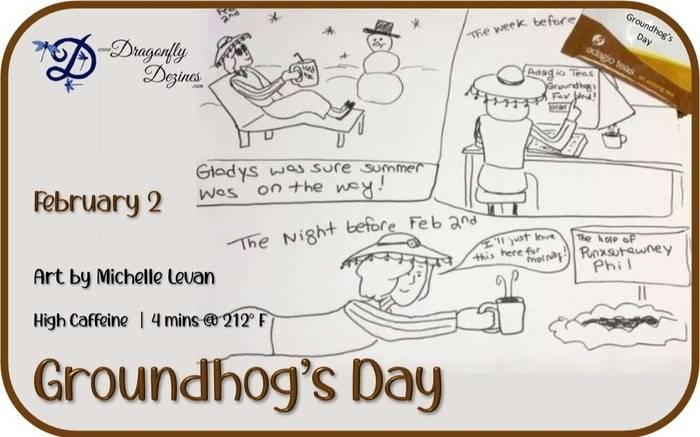 www.Dragonfly
Dezines
.com
Feb
2nd
Gladys was sure summer
was on the way!
The week before
Groundhog's
Day
adagio teas
Adagio Teas
Groundhogs
Fav blnd!
The Night before Feb 2nd
I'll just leave
this here for
morning!
The hole of
Punxsutawney
Phil
February 2
Art by Michelle Levan
High Caffeine | 4 mins @ 212° F
Groundhog's Day